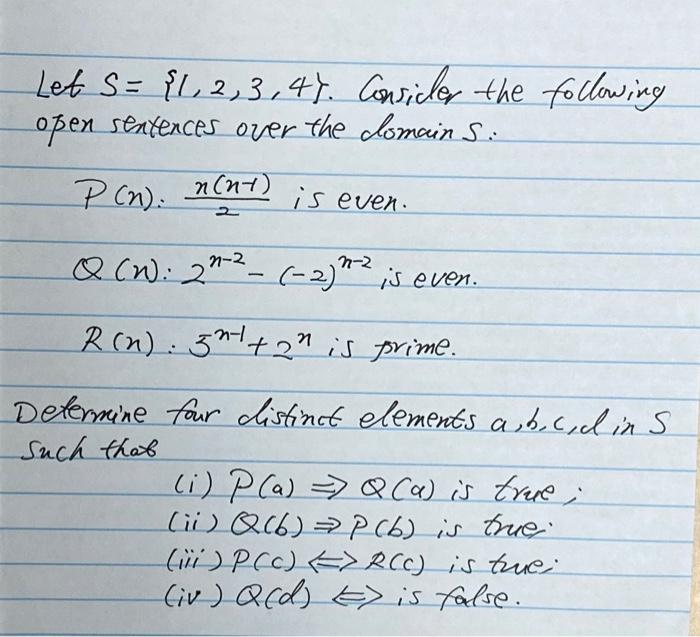 Let S = {1, 2, 3, 4}. Consider the following
open sentences over the domain S:
P(n): n(n-1)/2 is even.
Q(n): 2^(n-2) - (-2)^(n-2) is even.
R(n): 5^(n-1) + 2^n is prime.
Determine four distinct elements a, b, c, d in S
such that
(i) P(a) ⇒ Q(a) is true;
(ii) Q(b) ⇒ P(b) is true;
(iii) P(c) ⇔ R(c) is true;
(iv) Q(d) ⇔ is false.